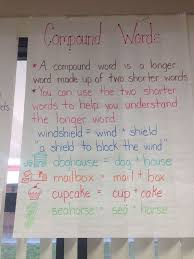 Compound Words
* A compound word is a longer
word made up of two shorter words.
* You can use the two shorter
words to help you understand
the longer word.
windshield = wind + shield
"a shield to block the wind"
doghouse = dog + house
mailbox = mail + box
cupcake = cup + cake
seahorse = sea + horse